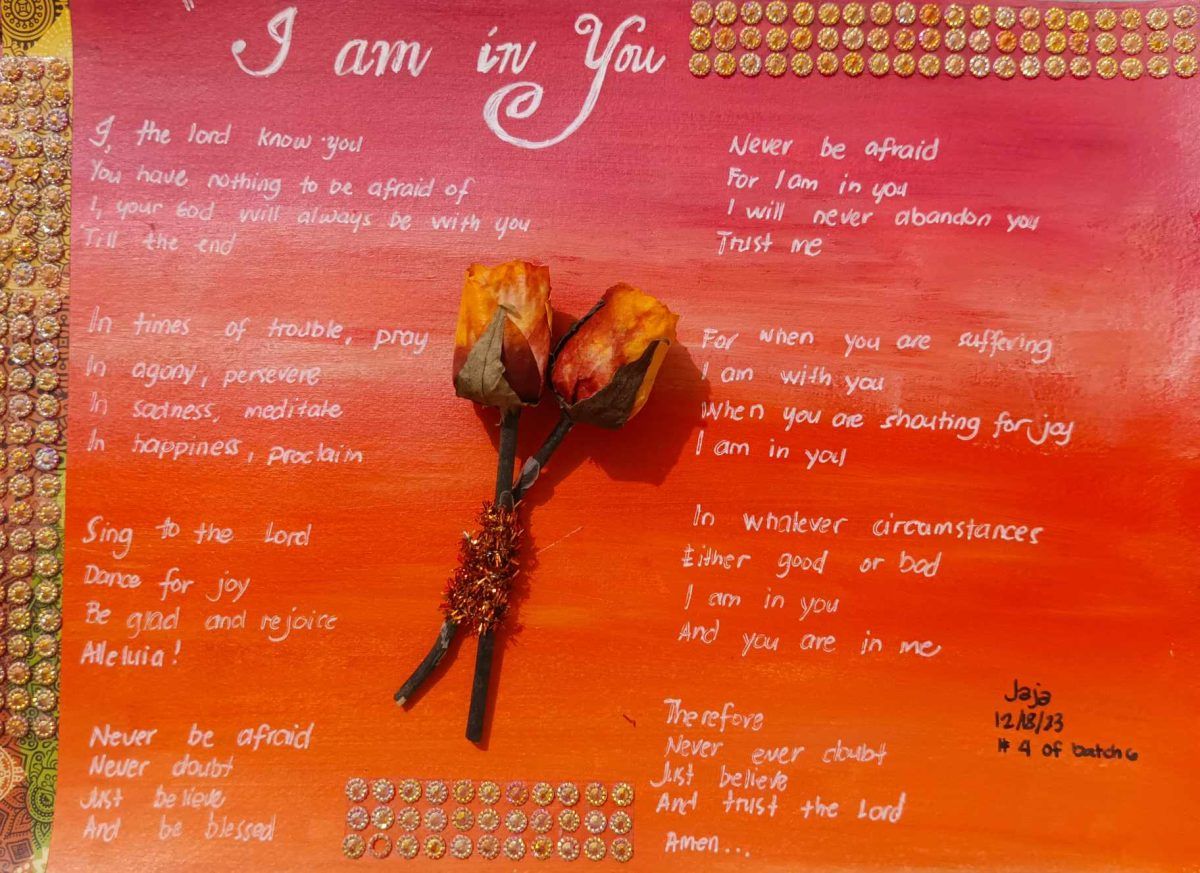 I am in You
I, the lord know you
You have nothing to be afraid of
I, your God will always be with you
Till the end
In times of trouble, pray
In agony, persevere
In sadness, meditate
In happiness, proclaim
Sing to the Lord
Dance for joy
Be glad and rejoice
Alleluia!
Never be afraid
Never doubt
Just believe
And be blessed
Never be afraid
For I am in you
I will never abandon you
Trust me
For when you are suffering
I am with you
When you are shouting for joy
I am in you
In whatever circumstances
Either good or bad
I am in you
And you are in me
Therefore
Never ever doubt
Just believe
And trust the Lord
Amen...
Jaja
12/18/23
# 4 of batch 6